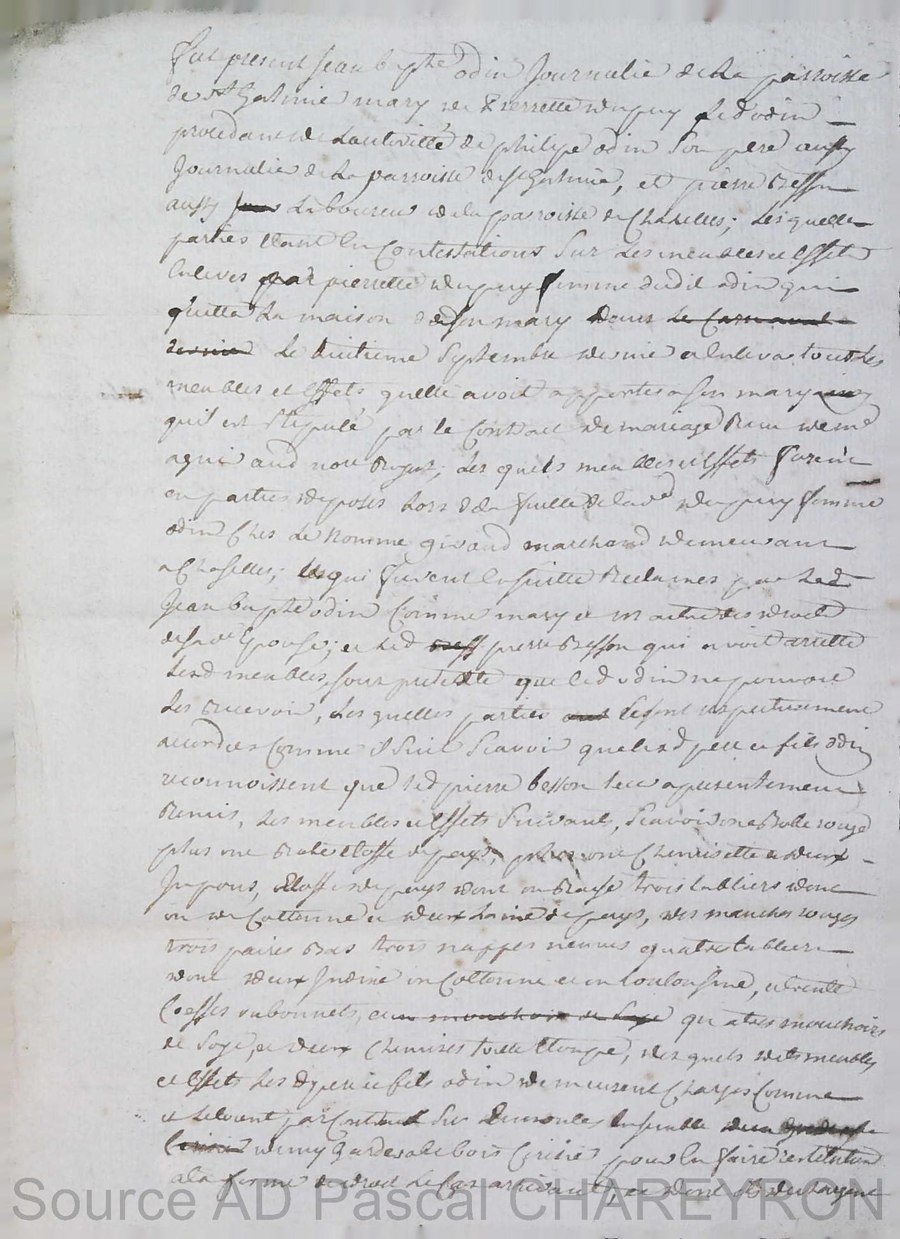 fut present Jean bapte odin Journalie de la parroisse
de st Galmie mary de pierrette dupuy led odin
procedant de Lautoritté de philipe odin Son pere aussy
Journalie de La parroisse de st Galmie, et pierre Besson
aussy Laboureur de la parroisse de Chaselles; Les quelles
parties Etant En Contestations Sur Les meubles et Effets
Enleves par pierrette dupuy femme dudit odin qui
quitta La maison de son mary dans le Carnaval
dernier Le huitieme Septembre dernie et Enleva tout Les
meubles et Effets quelle avoit apportes a Son mary
qu'il est Stipulé par le Contract de mariage Recu
nore Royal; Les quels meubles et Effets furent
en parties deposés Lors de la fuitte de lad dupuy femme
odin Ches Le Nomme giraud marchand demeurant
a Chaselles; qui furent Ensuitte Reclames par Led
Jean bapte odin Comme mary et maitre des droits
de sad Epouse; et Led pierre Besson qui avoit arretté
Lesd meubles, sous pretexte que led odin ne pouvoit
Les Recevoir, Les quelles parties se sont respectivement
accordées Comme S Suit Scavoir que lesd pere et fils odin
reconnoissent que led pierre besson leur a presentement
Remis, Les meubles et Effets Suivant, Scavoir une Robe rouge
plus une Robe Etoffe de pays, plus une Chemisette et deux
Jupons, Etoffe de pays dont un Rasse trois tabliers dont
un de Cottonne et deux Laine de pays, des manches rouges
trois paires Bas trois nappes neuves quatre tabliers
dont deux Indine un Cottonne et un toulousine, et trente
Coeffes ou bonnets, et un mouchoir de Soye quatre mouchoirs
de Soye, et deux Chemises toille Etoupe, des quels dits meubles
et Effets Les d pere et fils odin demeurent Charges Comme
pour En faire restitution
a la forme du droit Le Cas arrivant